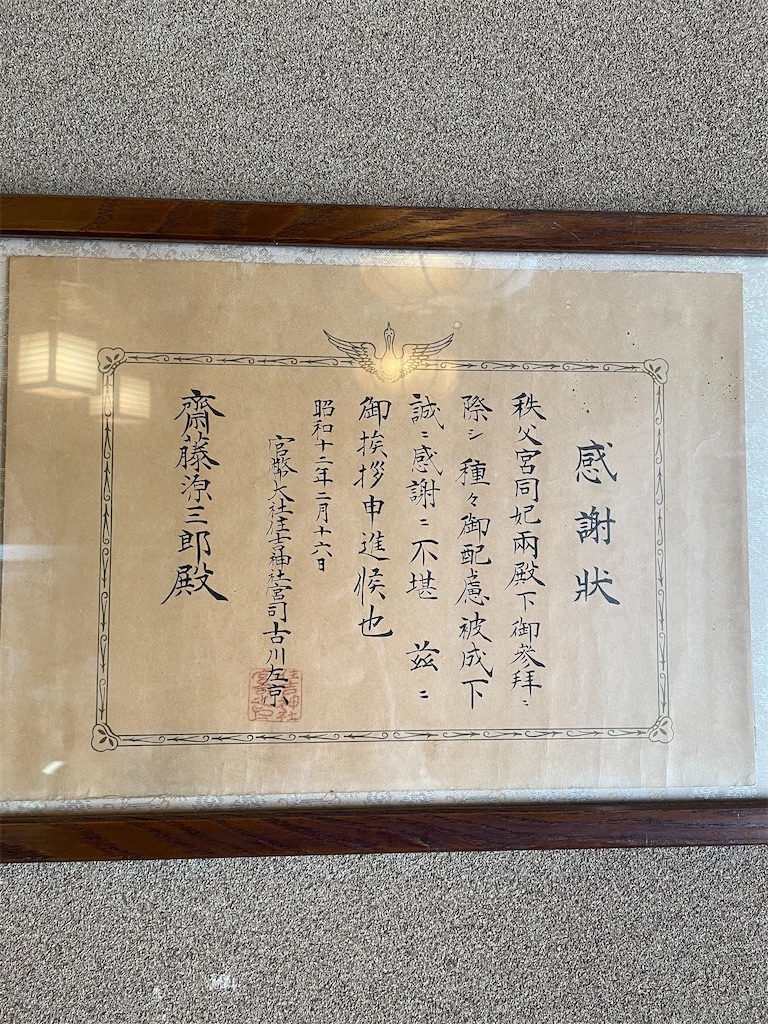 感謝狀
秩父宮同妃兩殿下御參拜ニ
際シ種々御配慮被成下
誠ニ感謝ニ不堪 茲ニ
御挨拶申進候也
昭和十二年二月十六日
官幣大社住吉神社宮司古川左京
齋藤源三郎殿